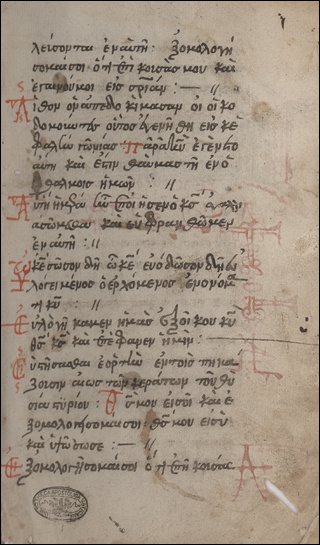 λεύσονται ἐν αὐτῆ: Ἐξομολογή
σομαί σοι ὅτι ἐπήκουσάς μου καὶ
ἐγένου μοι εἰς σ̅ρίαν: — //
Λίθον ὃν ἀπεδοκίμασαν οἱ οἰκο
δομοῦντες οὗτος ἐγενήθη εἰς κε
φαλὴν γωνίας Παρὰ κ̅υ ἐγένετο
αὕτη καὶ ἔστιν θαυμαστὴ ἐν ὀ
φθαλμοῖς ἡμῶν: //
Αὕτη ἡ ἡμέρα ἣν ἐποίησεν ὁ κ̅ς ἀγαλλι
ασώμεθα καὶ εὐφρανθῶμεν
ἐν αὐτῆ: //
Ὦ κ̅ε σῶσον δὴ ὦ κ̅ε εὐόδωσον δὴ εὐ
λογημένος ὁ ἐρχόμενος ἐν ὀνόμα
τι κ̅υ: //
Εὐλογήκαμεν ὑμᾶς ἐξ οἴκου κ̅υ
θ̅ς κ̅ς καὶ ἐπέφανεν ἡμῖν:
Συστήσασθαι ἑορτὴν ἐν τοῖς πυκά
ζουσιν ἕως τῶν κεράτων τοῦ θυ
σιαστηρίου: Θ̅ς μου εἶ σοὶ καὶ ἐ
ξομολογήσομαί σοι θ̅ς μου εἶ σὺ
καὶ ὑψώσω σε: — //
Ἐξομολογήσομαί σοι ὅτι ἐπήκουσάς